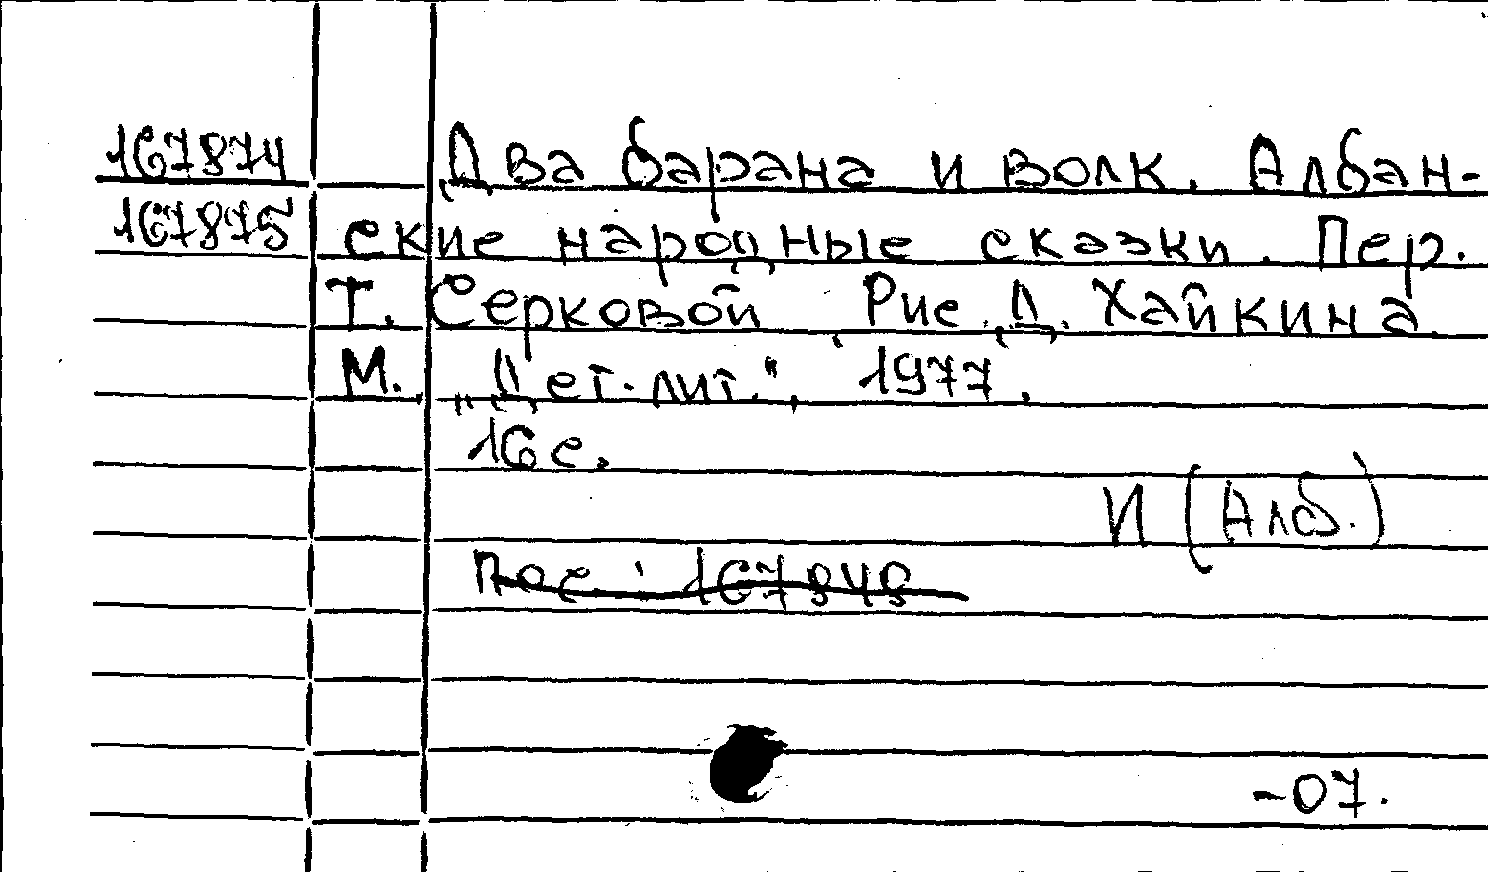 167874 Два барана и волк. Албан-
167875 ские народные сказки. Пер.
Т. Серковой Рис. Д. Хайкина.
М., „Дет. лит.", 1977.
16 с.
И (Алб.)
-07.